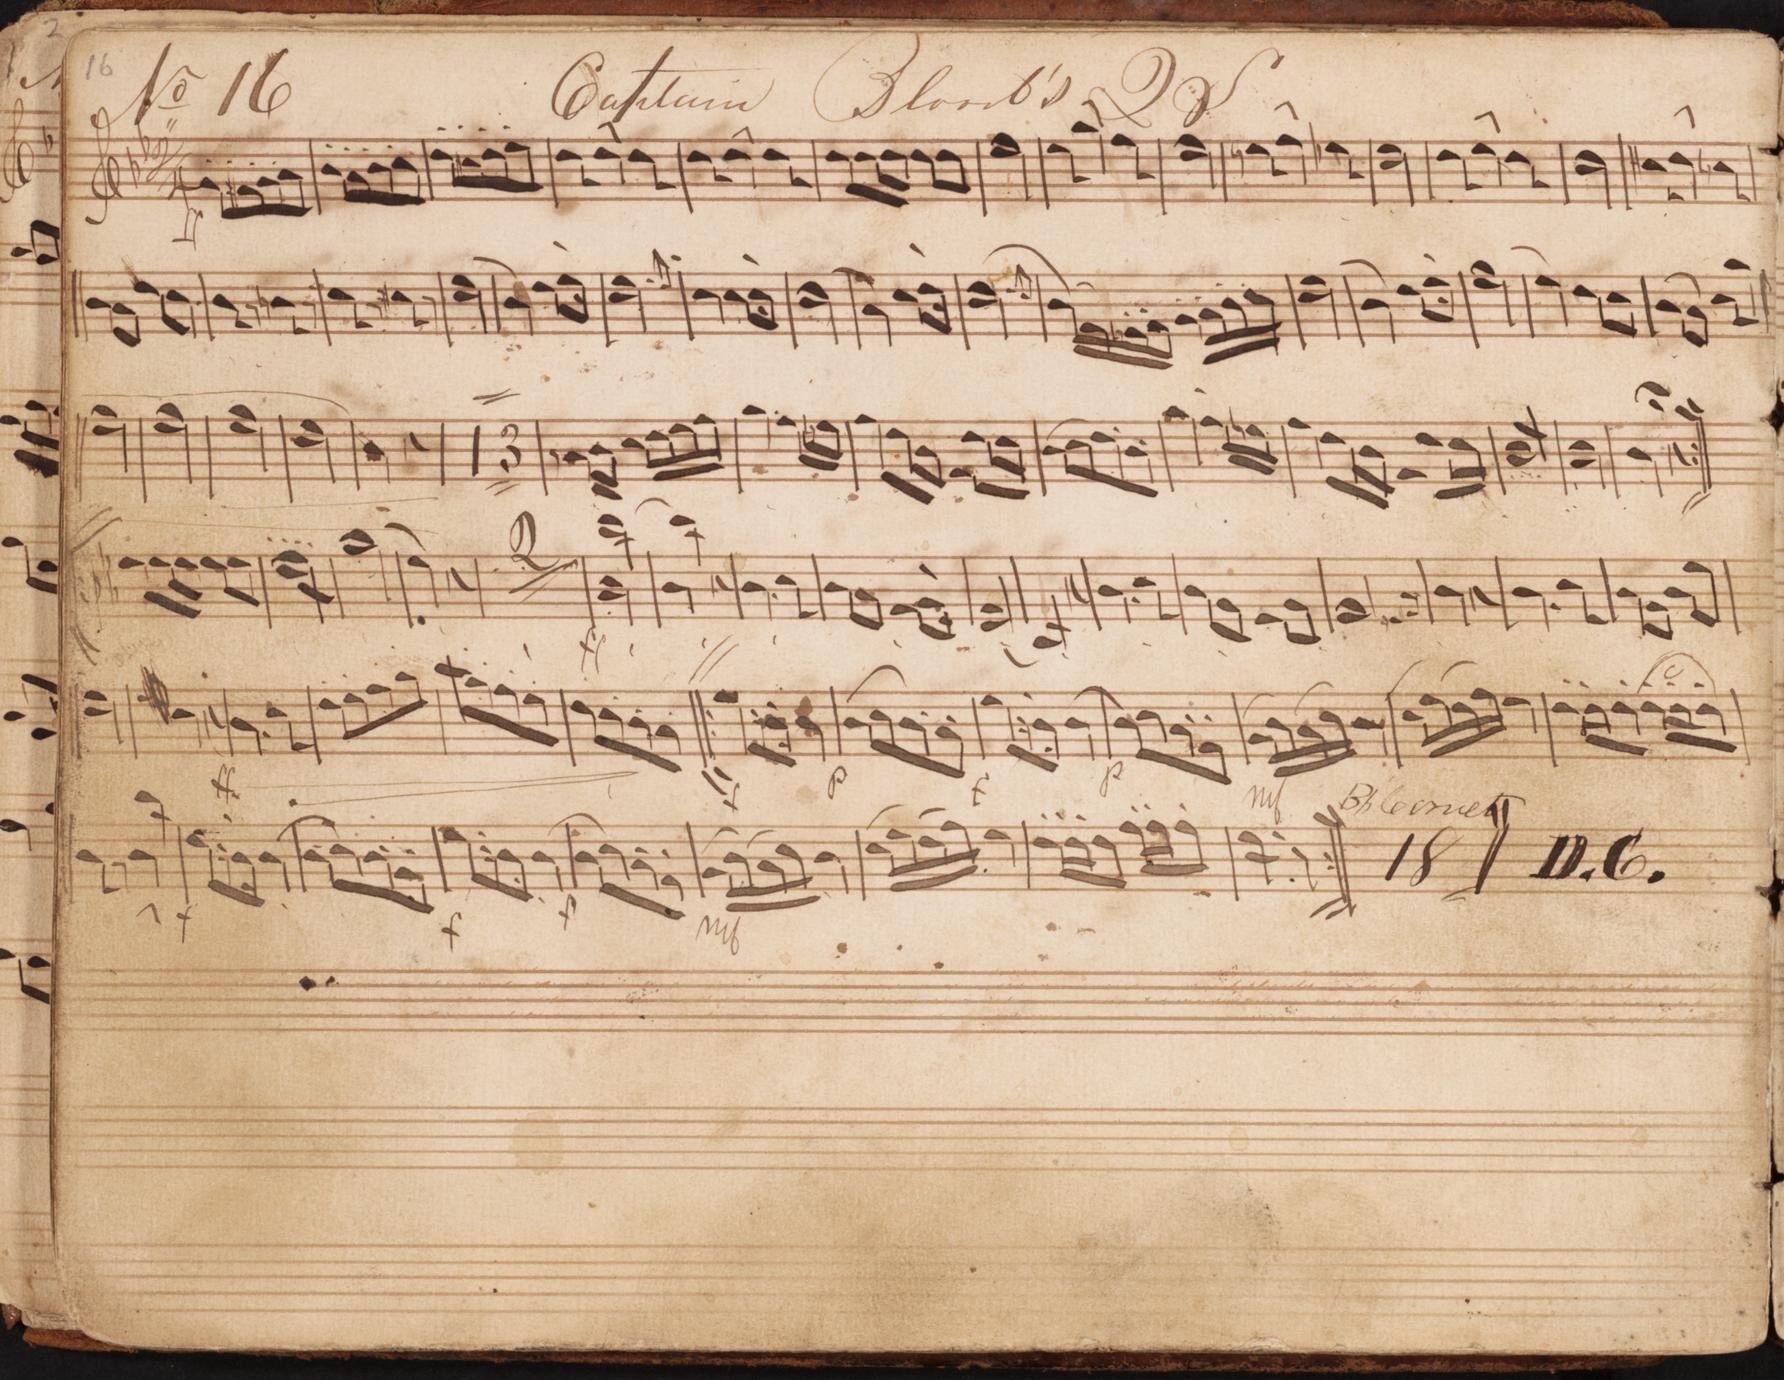 16
No 16 Captain Blood's Q S
13
2
ff
ff f p f p mf
Bb Cornet
18 D.C.
f f p mf